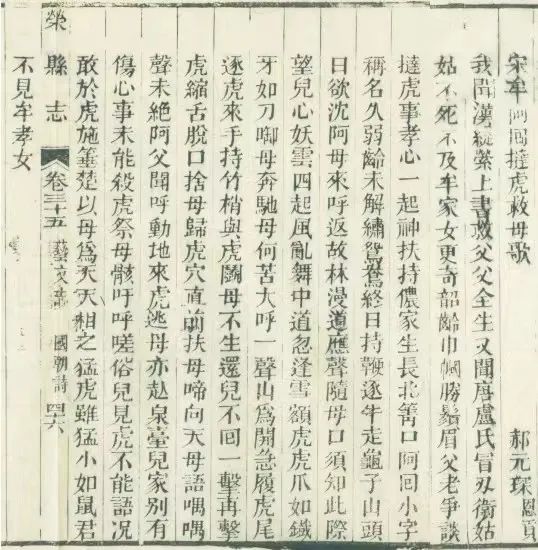 宋牟阿囘撻虎救母歌 郝元琛 恩貢
我聞漢緹縈上書救父父全生又聞唐盧氏冒刃衛姑
姑不死不及牟家女更奇韶齡巾幗勝鬚眉父老爭談
撻虎事孝心一起神扶持儂家生長北箐口阿囘小字
稱名久弱齡未解繡鴛鴦終日持鞭逐牛走龜子山頭
日欲沈阿母來呼返故林漫道應聲隨母口須知此際
望兒心妖雲四起風亂舞中道忽逢雪額虎虎爪如鐵
牙如刀啣母奔馳母何苦大呼一聲山爲開急履虎尾
逐虎來手持竹梢與虎鬭母不生還兒不囘一擊再擊
虎縮舌脫口捨母歸虎穴直前扶母啼向天母語喁喁
聲未絶阿父聞呼動地來虎逃母亦赴泉臺兒家別有
傷心事未能殺虎祭母骸吁呼嗟俗兒見虎不能語况
敢於虎施箠楚以母爲天天相之猛虎雖猛小如鼠君
榮縣志 卷三十五 藝文 國朝詩 四六
不見牟孝女